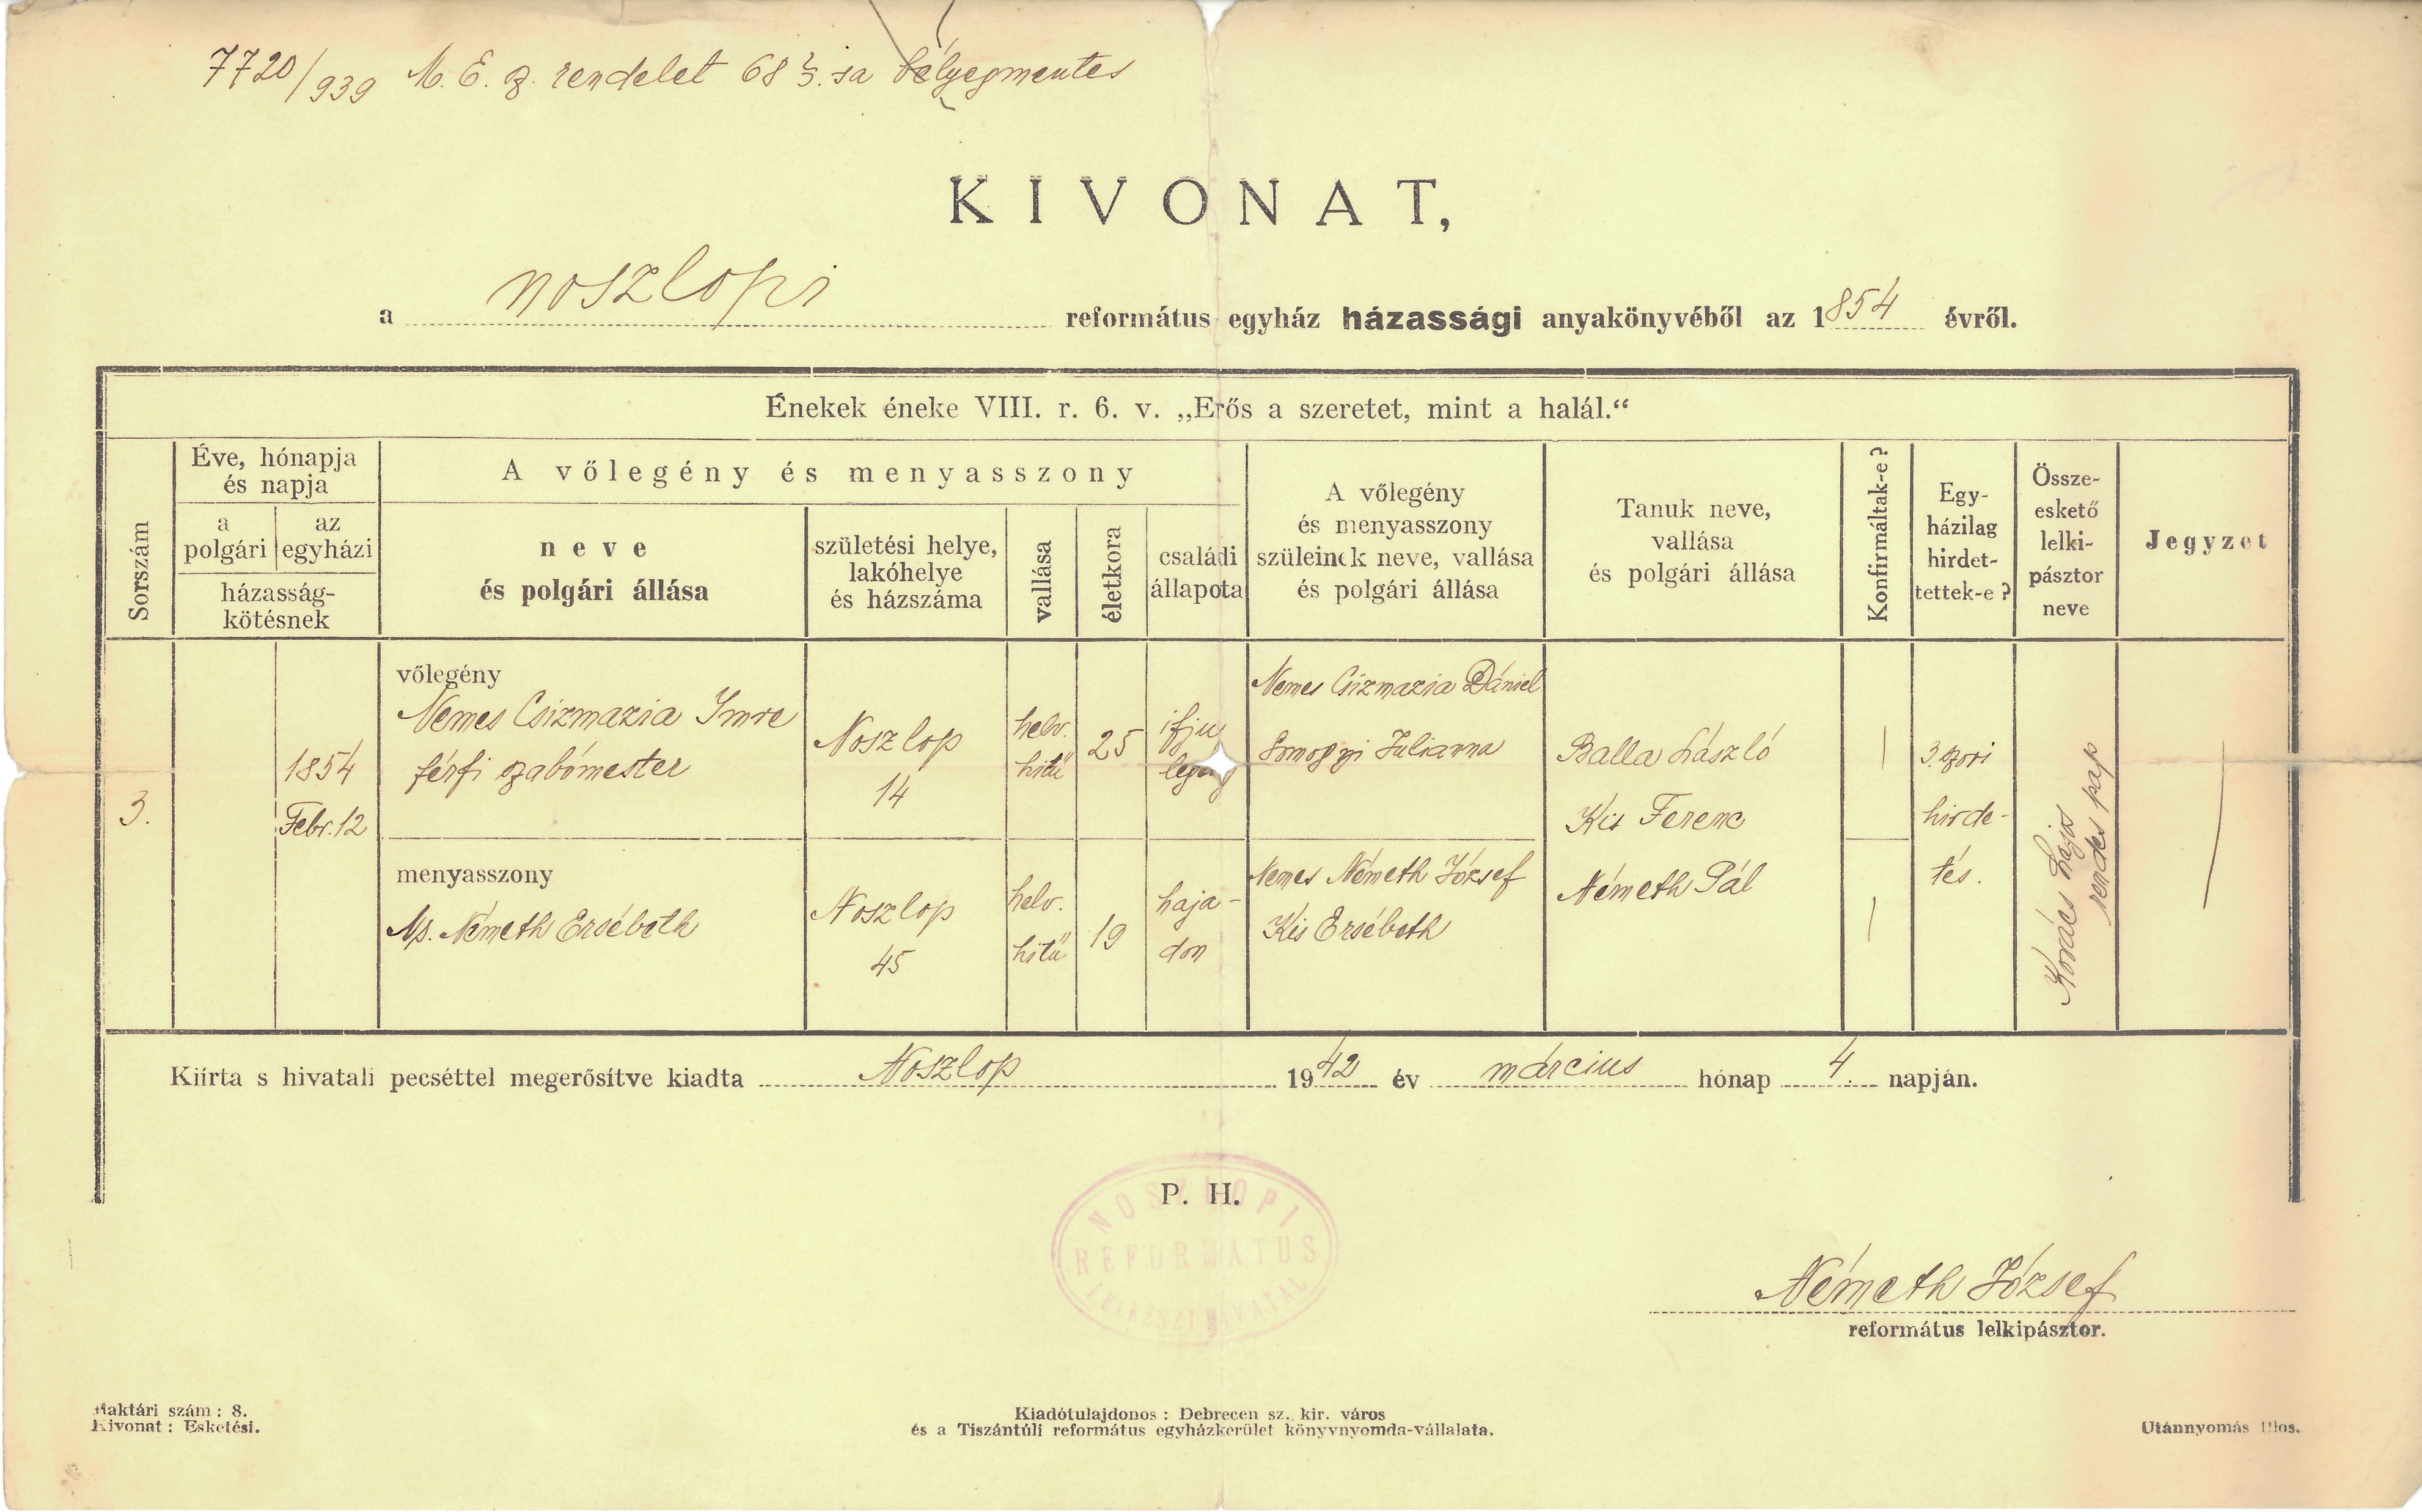 7720/939 M. E. sz. rendelet 68 §.-sa bélyegmentes
KIVONAT,
a noszlopi református egyház házassági anyakönyvéből az 1854 évről.
Énekek éneke VIII. r. 6. v. „Erős a szeretet, mint a halál.“
Sorszám
Éve, hónapja
és napja
a
polgári
az
egyházi
házasság-
kötésnek
A vőlegény és menyasszony
neve
és polgári állása
születési helye,
lakóhelye
és házszáma
vallása
életkora
családi
állapota
A vőlegény
és menyasszony
szüleinek neve, vallása
és polgári állása
Tanuk neve,
vallása
és polgári állása
Konfirmáltak-e?
Egy-
házilag
hirdet-
tettek-e?
Össze-
eskető
lelki-
pásztor
neve
Jegyzet
3.
1854
Febr. 12
vőlegény
Nemes Csizmazia Imre
férfi szabómester
Noszlop
14
helv.
hitü
25
ifju
legény
Nemes Csizmazia Dániel
Somogyi Julianna
Balla László
Kis Ferenc
Németh Pál
3. szori
hirde-
tés.
Kovács Lajos
rendes pap
menyasszony
Ns. Németh Ersébeth
Noszlop
45
helv.
hitü
19
haja-
don
Nemes Németh József
Kis Ersébeth
Kiírta s hivatali pecséttel megerősítve kiadta Noszlop 1942 év március hónap 4. napján.
P. H.
NOSZLOPI
REFORMÁTUS
LELKÉSZI HIVATAL
Németh József
református lelkipásztor.
Raktári szám: 8.
Kivonat: Esketési.
Kiadótulajdonos: Debrecen sz. kir. város
és a Tiszántúli református egyházkerület könyvnyomda-vállalata.
Utánnyomás tilos.